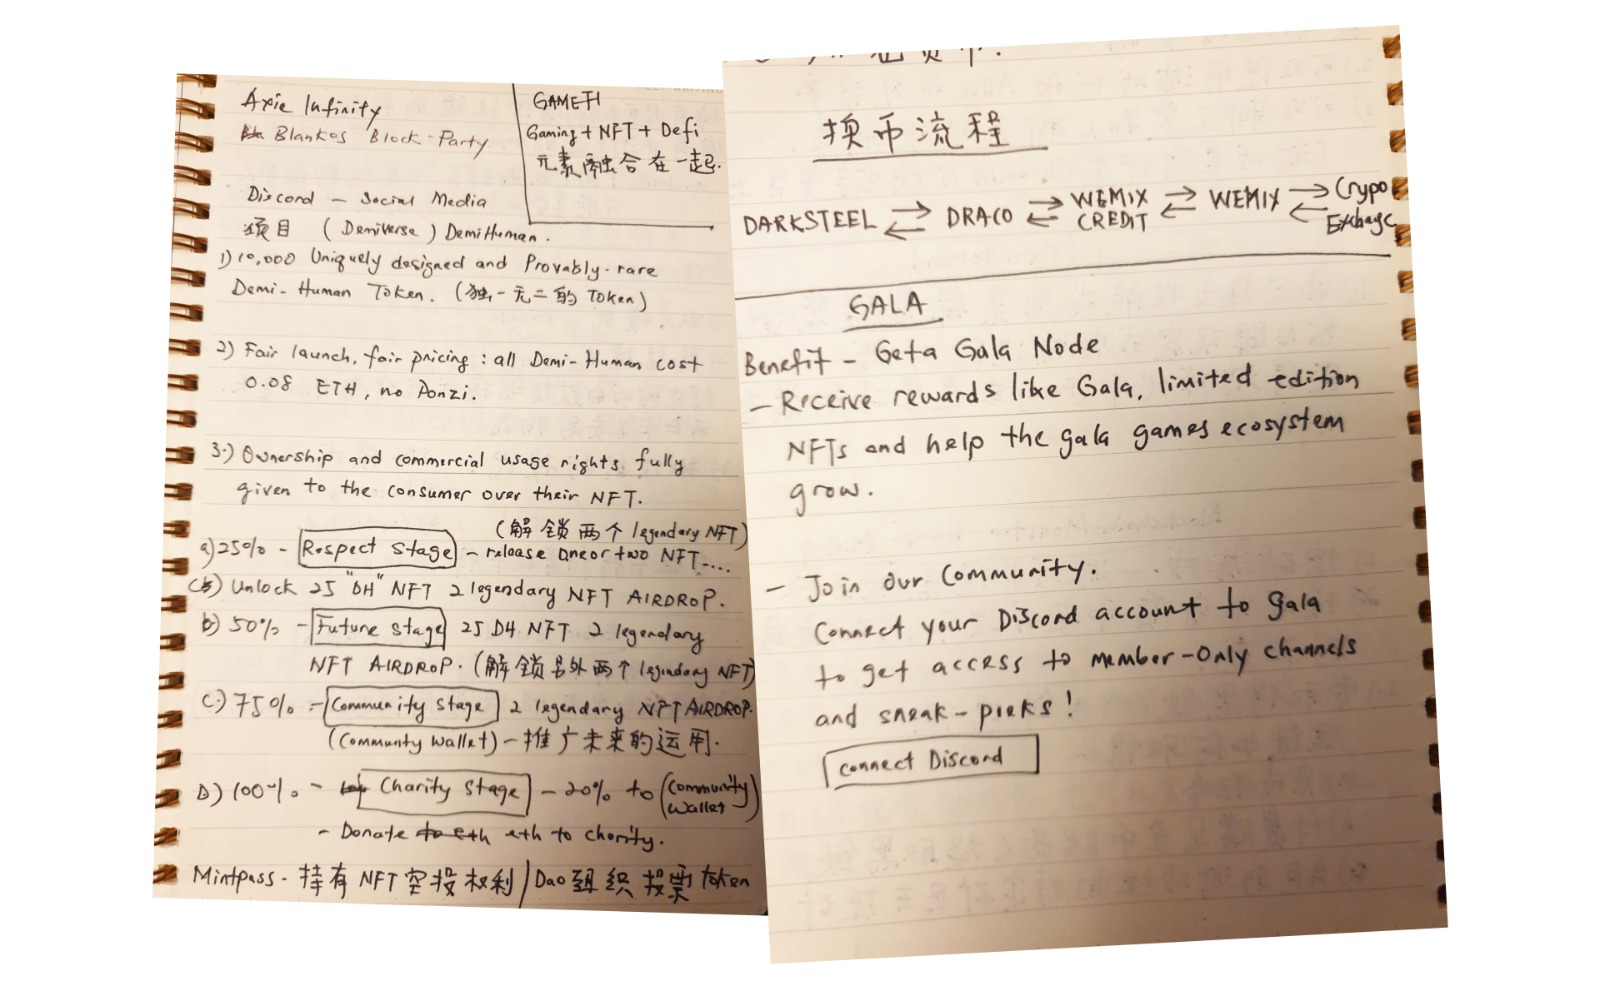 Axie Infinity
Blankos Block-Party
GAMEFI
Gaming + NFT + Defi
元素融合在一起.
Discord - Social Media
项目 (Demiverse) DemiHuman.
1) 10,000 Uniquely designed and Provably-rare
Demi-Human Token. (独一无二的 Token)
2) Fair launch, fair pricing : all Demi-Human cost
0.08 ETH, no Ponzi.
3.) Ownership and commercial usage rights fully
given to the consumer over their NFT.
(解锁两个 legendary NFT)
a) 25% - Respect Stage - release one or two NFT....
Unlock 25 "DH" NFT 2 legendary NFT AIRDROP.
b) 50% - Future Stage 25 DH NFT 2 legendary
NFT AIRDROP. (解锁另外两个 legendary NFT)
C.) 75% - Community Stage 2 legendary NFT AIRDROP.
(Communty Wallet) - 推广未来的运用.
D) 100% - Charity Stage - 20% to (Community Wallet)
- Donate to eth eth to charity.
Mintpass - 持有 NFT 空投权利 / Dao 组织投票 token
换币流程
DARKSTEEL ⇄ DRACO ⇄ WEMIX CREDIT ⇄ WEMIX ⇄ Crypo Exchage
GALA
Benefit - Get a Gala Node
- Receive rewards like Gala, limited edition
NFTs and help the gala games ecosystem
grow.
- Join our Community.
Connect your Discord account to Gala
to get access to member-Only channels
and sneak-pieks!
connect Discord